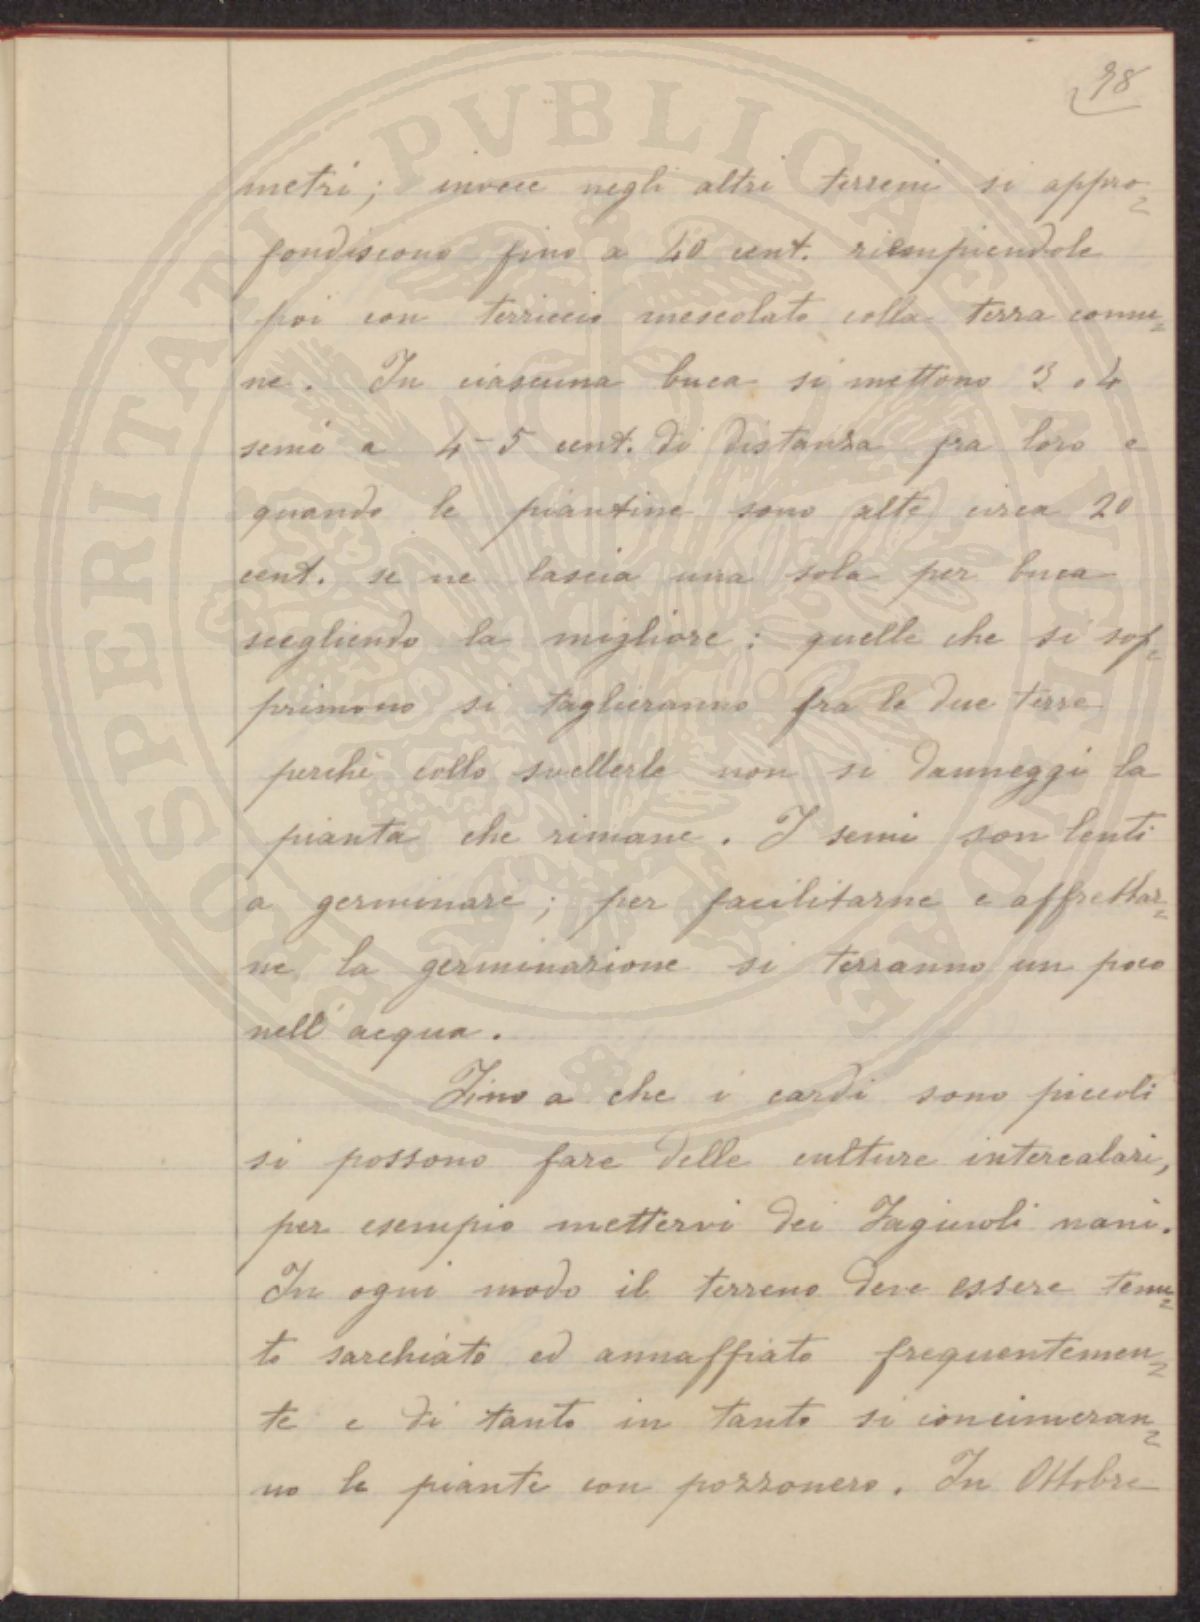 98
metri; invece negli altri terreni si appro=
fondiscono fino a 40 cent. riempiendole
poi con terriccio mescolato colla terra comu=
ne. In ciascuna buca si mettono 3 o 4
semi a 4-5 cent. di distanza fra loro e
quando le piantine sono alte circa 20
cent. se ne lascia una sola per buca
scegliendo la migliore: quelle che si sop=
primono si taglieranno fra le due terre
perchè collo svellerle non si danneggi la
pianta che rimane. I semi son lenti
a germinare; per facilitarne e affrettar=
ne la germinazione si terranno un poco
nell'acqua.
Fino a che i cardi sono piccoli
si possono fare delle culture intercalari,
per esempio mettervi dei Fagiuoli nani.
In ogni modo il terreno deve essere tenu=
to sarchiato ed annaffiato frequentemen=
te e di tanto in tanto si concimeran=
no le piante con pozzonero. In Ottobre
PROSPERITATI PVBLICAE AVGENDAE